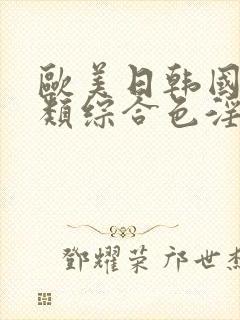 歐美日韩國
類綜合色淫
鄧耀荣 邝世杰